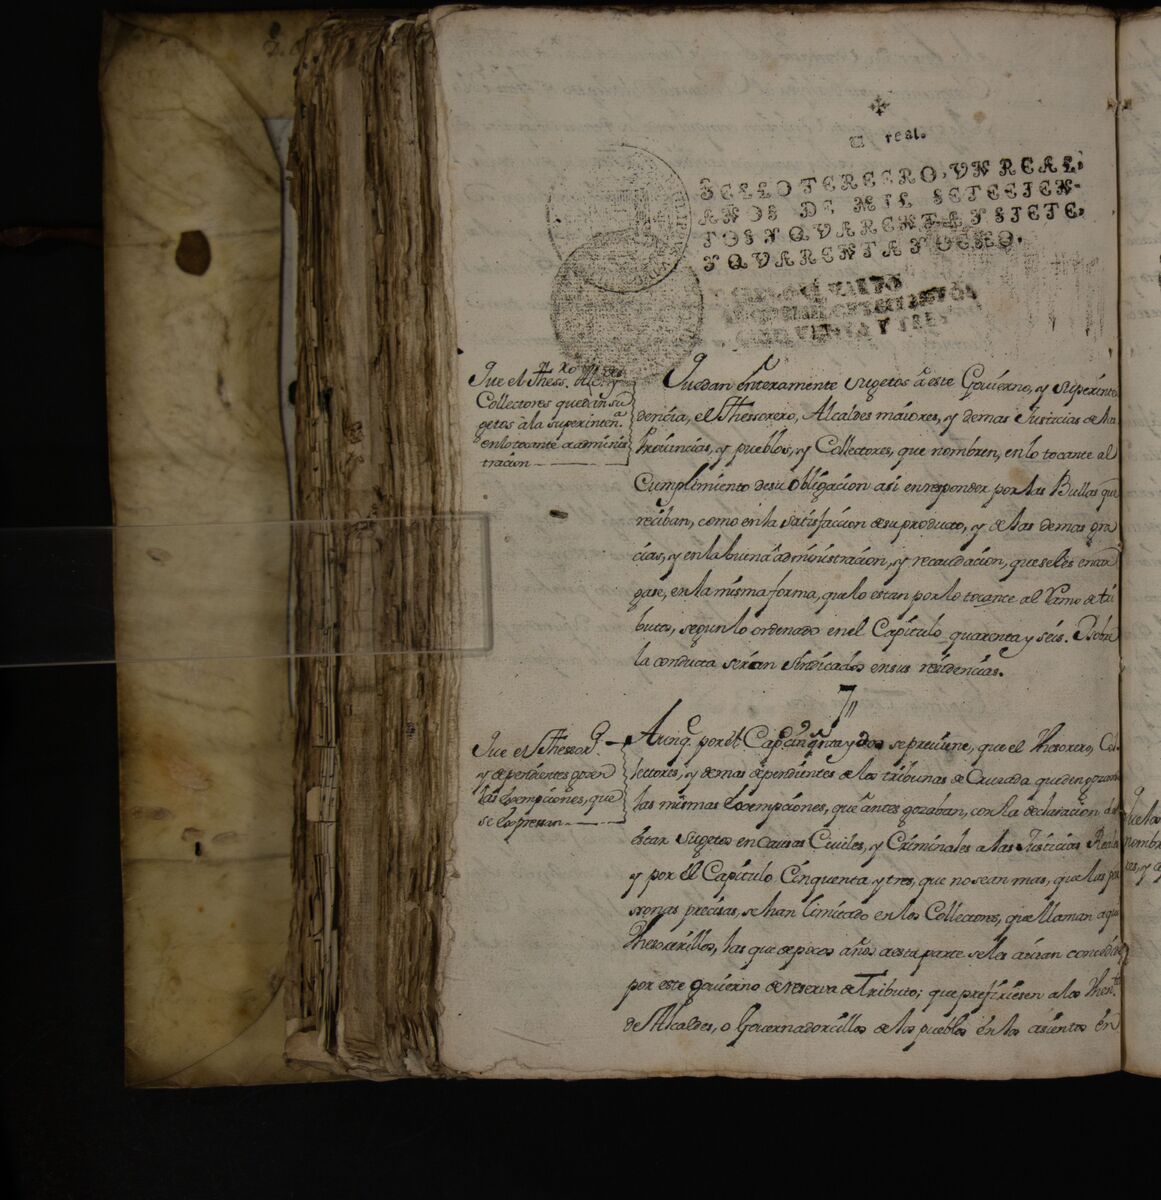 un real.
SELLO TERCERO, UN REAL,
AÑOS DE MIL SETECIEN-
TOS Y QUARENTA Y SIETE,
Y QUARENTA Y OCHO.
Que el Thess.ro Alc.des y
Collectores queden su
getos à la superinten.a
en lo tocante a administ
tracion
Quedan enteramente sugetos à este Govierno, y superinten
dencia, el Thessorero, Alcaldes maiores, y demas Justicias de las
Provincias, y pueblos, y Collectores, que nombren, en lo tocante al
Cumplimiento de su obligacion asi en responder por las Bullas que
reciban, como en la satisfaccion de su producto, y de las demas gra
cias, y en la buena administracion, y recaudacion, que se les encar
gase, en la misma forma, que lo estan por lo tocante al Ramo de tri
butos, segun lo ordenado en el Capitulo quarenta y seis. Y sobre
la conducta serán sindicados en sus residencias.
7
Que el Thessor.o
y dependientes gozen
las exempciones, que
se expresan
Aunq.e por el Cap.o cinq.ta y dos se previene, que el Thesorero, Col
lectores, y demas dependientes de los tribunas de Cruzada queden gozan
las mismas exempciones, que antes gozaban, con la declaracion de
estar sugetos en causas Civiles, y Criminales a las Justicias Reale
y por el Capitulo Cinquenta y tres, que no sean mas, que las per
sonas precisas, se han limitado en los Collectores, que llaman aqui
Thesorerillos, las que de pocos años a esta parte se les avian concedido
por este govierno de reserva de Tributo; que prefiriesen a los Then.tes
de Alcaldes, o Governadorcillos de los pueblos en los asientos en